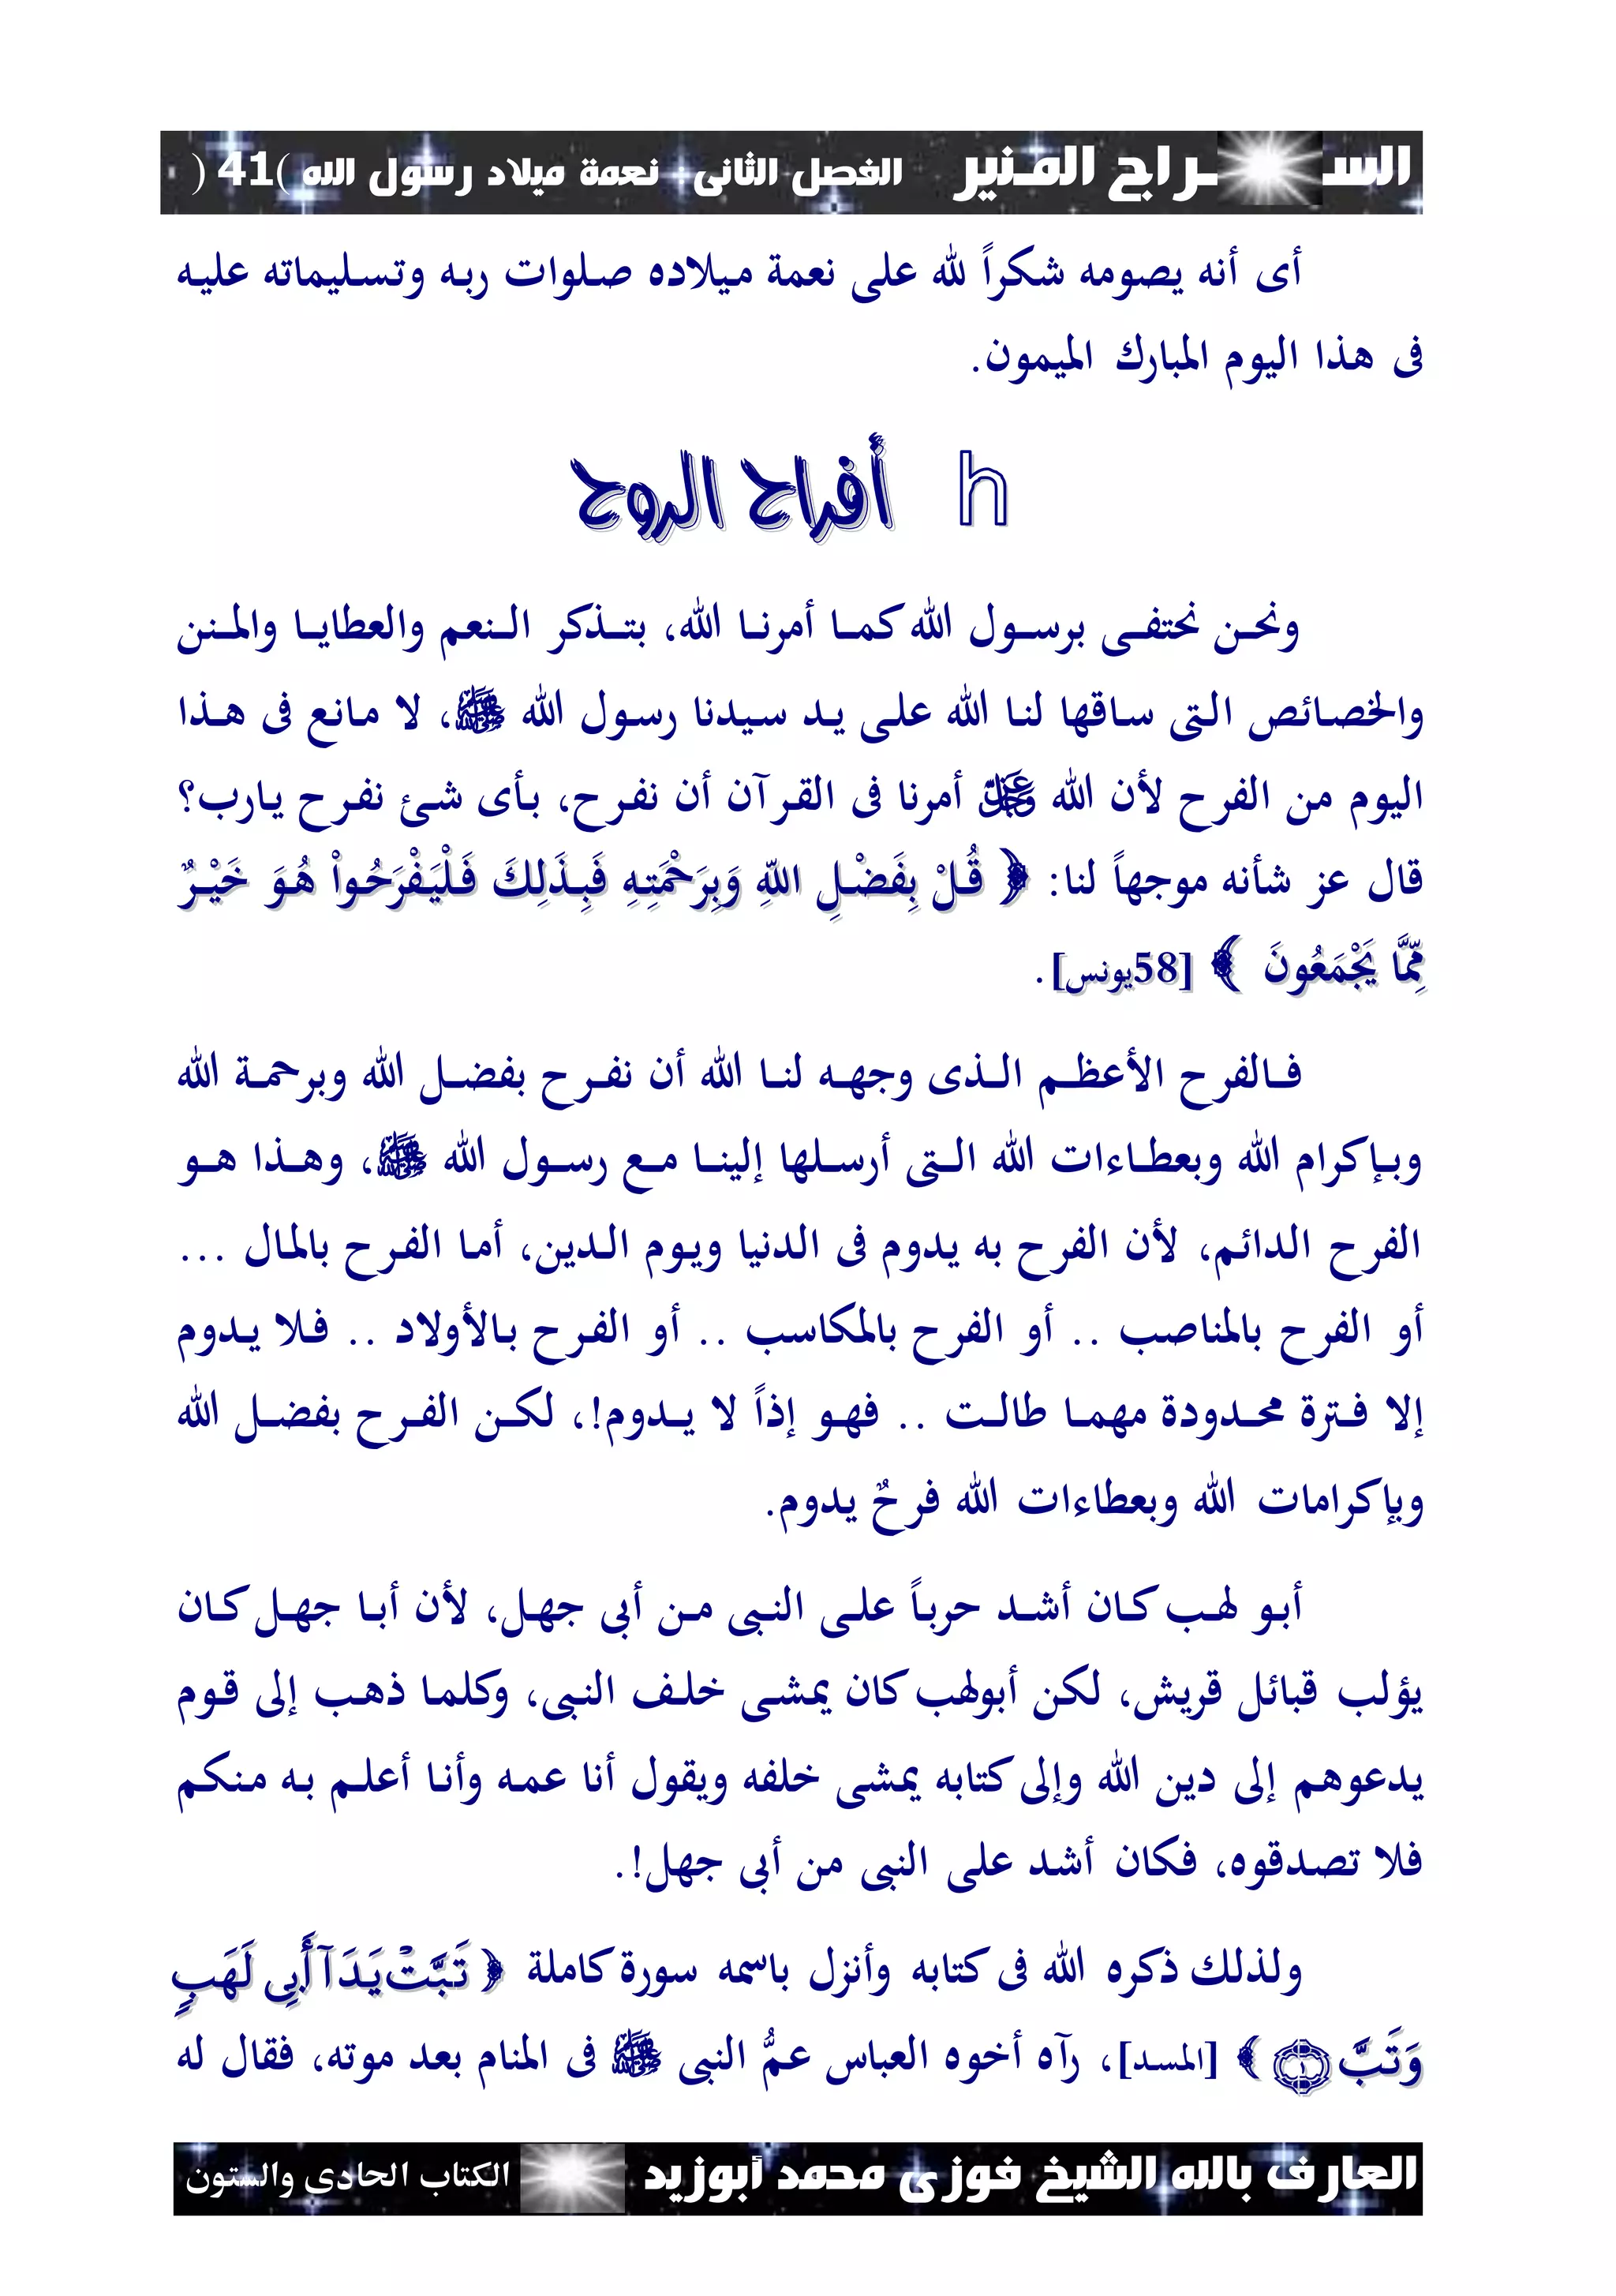 السـراج المـنير الفصل الثانى نعمة ميلاد رسول الله (41)
أى أنه يصومه شكراً لله على نعمة ميلاده صلوات ربه وتسليماته عليه
فى هذا اليوم المبارك الميمون.
h أفراح الروح
ونحن نحتفى برسول الله كما أمرنا الله، بتذكر النعم والعطايا والمنن
والخصائص التى ساقها لنا الله على يد سيدنا رسول الله ﷺ، لا مانع فى هذا
اليوم من الفرح لأن الله عز وجل أمرنا فى القرآن أن نفرح، بأى شئ نفرح يارب؟
قال عز شأنه موجهاً لنا: ﴿ قُلْ بِفَضْلِ اللهِ وَبِرَحْمَتِهِ فَبِذَلِكَ فَلْيَفْرَحُواْ هُوَ خَيْرٌ
مِّمَّا يَجْمَعُونَ ﴾ [58يونس].
فالفرح الأعظم الذى وجهه لنا الله أن نفرح بفضل الله وبرحمة الله
وبإكرام الله وبعطاءات الله التى أرسلها إلينا مع رسول الله ﷺ، وهذا هو
الفرح الدائم، لأن الفرح به يدوم فى الدنيا ويوم الدين، أما الفرح بالمال ...
أو الفرح بالمناصب .. أو الفرح بالمكاسب .. أو الفرح بالأولاد .. فلا يدوم
إلا فترة محدودة مهما طالت .. فهو إذاً لا يدوم!، لكن الفرح بفضل الله
وبإكرامات الله وبعطاءات الله فرحٌ يدوم.
أبو لهب كان أشد حرباً على النبى من أبى جهل، لأن أبا جهل كان
يؤلب قبائل قريش، لكن أبولهب كان يمشى خلف النبى، وكلما ذهب إلى قوم
يدعوهم إلى دين الله وإلى كتابه يمشى خلفه ويقول أنا عمه وأنا أعلم به منكم
فلا تصدقوه، فكان أشد على النبى من أبى جهل!.
ولذلك ذكره الله فى كتابه وأنزل باسمه سورة كاملة ﴿ تَبَّتْ يَدَآ أَبِى لَهَبٍ
وَتَبَّ ١ ﴾ [المسد]، رآه أخوه العباس عمُّ النبى ﷺ فى المنام بعد موته، فقال له
العارف بالله الشيخ فوزى محمد أبوزيد الكتاب الحادى والستون